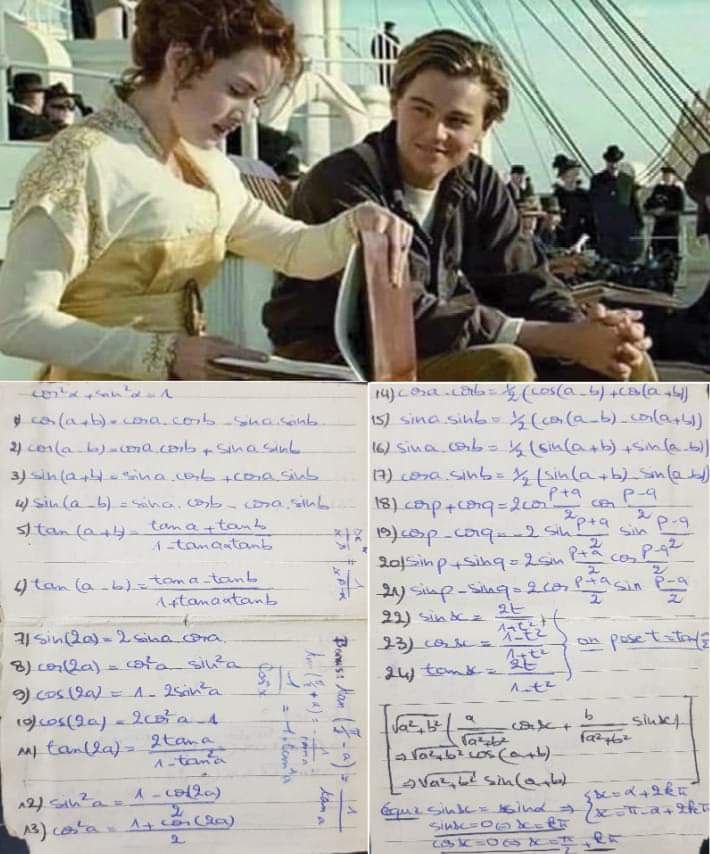 cos²x + sin²x = 1
1) cos(a+b) = cosa.cosb - sina.sinb
2) cos(a-b) = cosa.cosb + sina sinb
3) sin(a+b) = sina.cosb + cosa.sinb
4) sin(a-b) = sina.cosb - cosa.sinb
5) tan(a+b) = \frac{tana + tanb}{1 - tana×tanb}
6) tan(a-b) = \frac{tana - tanb}{1 + tana×tanb}
7) sin(2a) = 2sina.cosa
8) cos(2a) = cos²a - sin²a
9) cos(2a) = 1 - 2sin²a
10) cos(2a) = 2cos²a - 1
11) tan(2a) = \frac{2tana}{1 - tan²a}
12) sin²a = \frac{1 - cos(2a)}{2}
13) cos²a = \frac{1 + cos(2a)}{2}
tan(π/2 - a) = \frac{1}{tana}
tan(π/2 + a) = -\frac{1}{tana}
\frac{1}{cos²x} = 1 + tan²a
14) cosa.cosb = 1/2 (cos(a-b) + cos(a+b))
15) sina.sinb = 1/2 (cos(a-b) - cos(a+b))
16) sina.cosb = 1/2 (sin(a+b) + sin(a-b))
17) cosa.sinb = 1/2 (sin(a+b) - sin(a-b))
18) cosp + cosq = 2cos\frac{p+q}{2} cos\frac{p-q}{2}
19) cosp - cosq = -2 sin\frac{p+q}{2} sin\frac{p-q}{2}
20) sinp + sinq = 2 sin\frac{p+q}{2} cos\frac{p-q}{2}
21) sinp - sinq = 2cos\frac{p+q}{2} sin\frac{p-q}{2}
22) sinx = \frac{2t}{1+t²}
23) cosx = \frac{1-t²}{1+t²} on pose t = tan(
24) tanx = \frac{2t}{1-t²}
√a²+b² ( \frac{a}{√a²+b²} cosx + \frac{b}{√a²+b²} sinx)
⇒ √a²+b² cos(a+b)
⇒ √a²+b² sin(a+b)
équa: sinx = sinα ⇒ { x = α + 2kπ
x = π - α + 2kπ
sinx = 0 ⇔ x = kπ
cosx = 0 ⇔ x = \frac{π}{2} + kπ